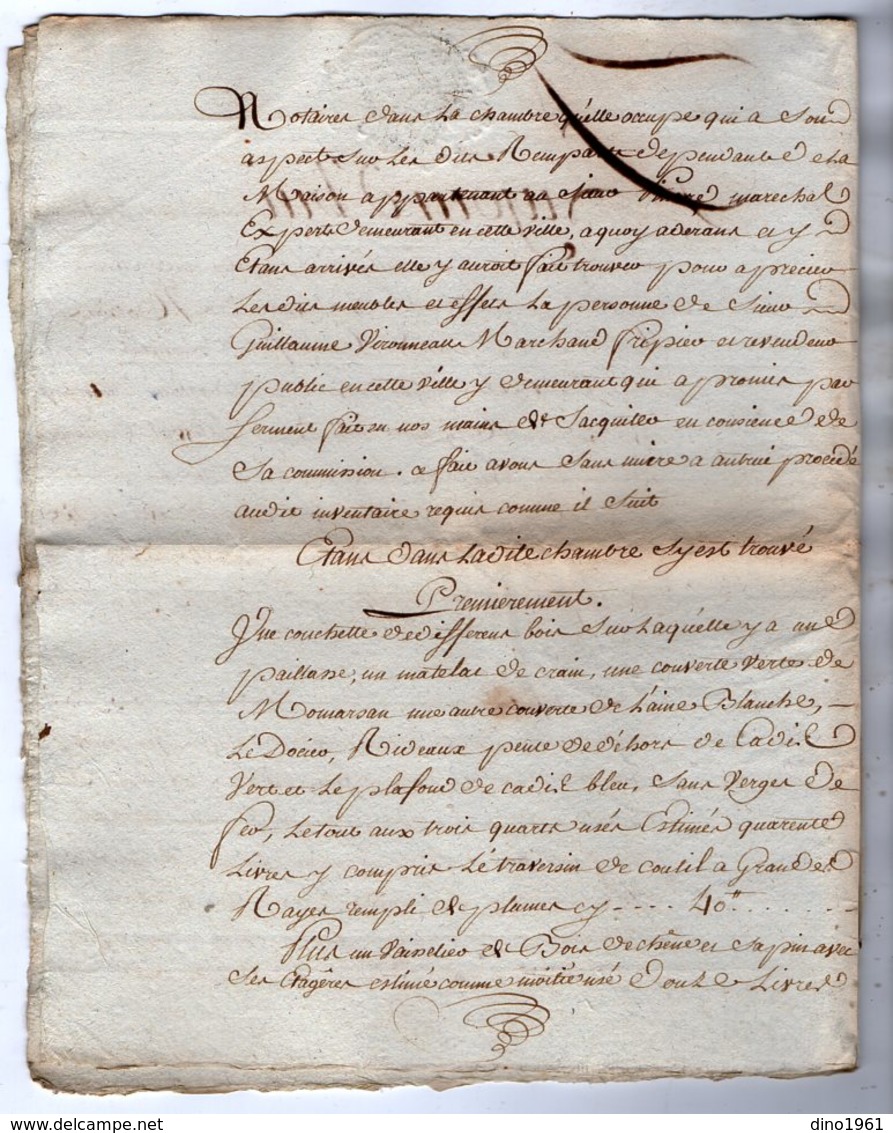 Notaires dans La chambre qu'elle occupe qui a Son
aspect Sur Les dits Remparts dependante de La
Maison appartenant au Sieur Pierre marechal
Expert demeurant en cette ville, a quoy aderans et y
Etans arrivés elle y auroit fait trouver pour apprecier
Lesdits meubles et effets La personne de Sieur
Guillaume Vironneau Marchand fripier et revendeur
public en cette ville y demeurant qui a promis par
Serment fait en nos mains de Sacquiter en consience de
Sa commission. ce fait avons Sans nuire a autrui procédé
audit inventaire requis comme il Suit
Etans dans Ladite chambre Sy est trouvé
Premierement.
Une couchette de differens bois Sur Laquelle y a une
paillasse, un matelat de crain, une couverte verte de
Momarsan une autre couverte de Laine Blanche,
Le Docier, Rideaux pente de déhors de Cadil
Vert et Le plafond de cadil bleu, Sans Verges de
fer, Le tout aux trois quarts usés Estimés quarente
Livres y compris Le traversin de coutil a Grandes
Rayes rempli de plumes cy .... 40"
Plus un Vaisselier de Bois de chêne et Sapin avec
Ses Etagères estimé comme moitié usé douze Livres
dino1961